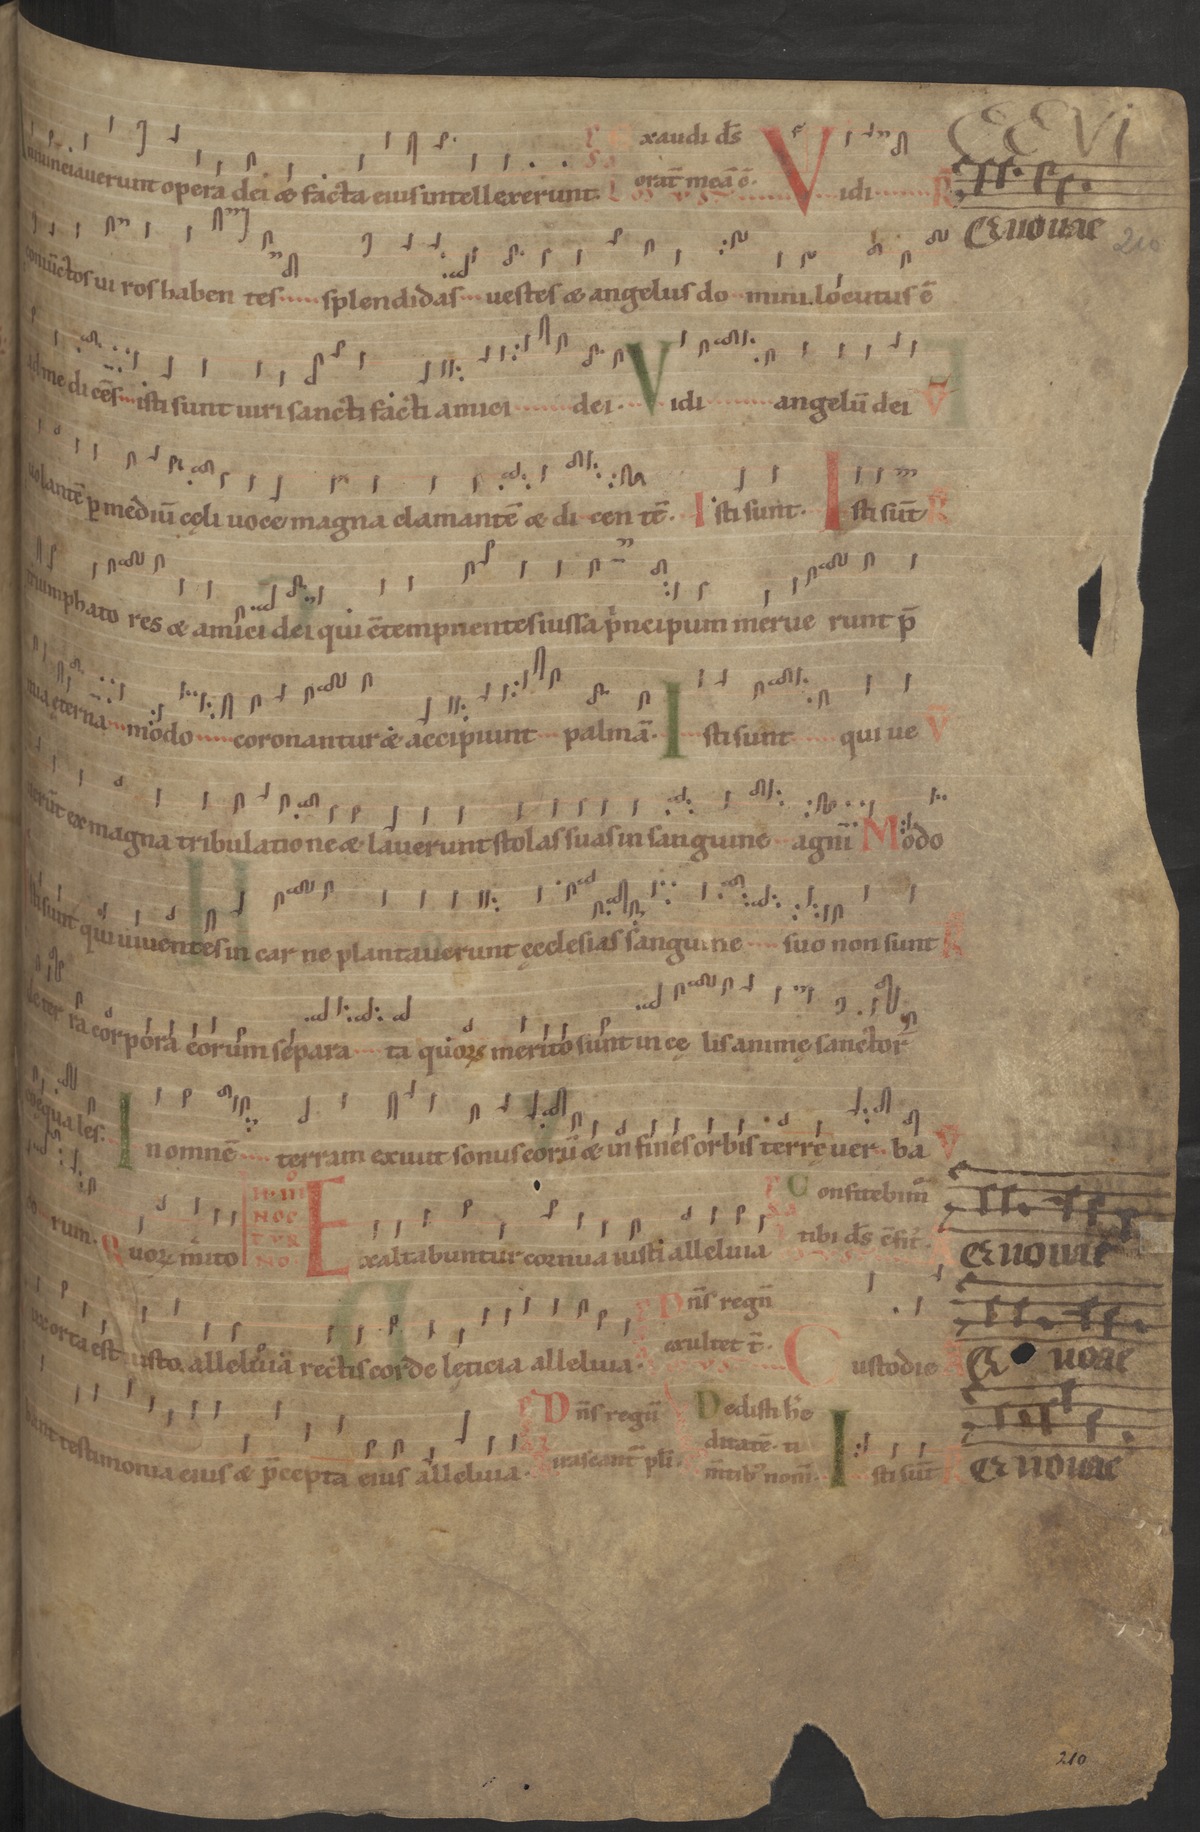 CCVI
Annunciauerunt opera dei & facta eius intellexerunt. Exaudi ds̄ Vidi
orat̄ meā c̄.
Euouae
210
coniūctos ui ros haben tes splendidas uestes & angelus do mini locutus ē
ad me di cēs isti sunt uiri sancti facti amici dei. Vidi angelū dei
uolantē p mediū cęli uoce magna clamantē & di cen tē. Isti sunt. Isti sūt
triumphato res & amici dei qui c̄tempnentes iussa p̄ncipum merue runt p̄
mia ęterna modo coronantur & accipiunt palmā. Isti sunt qui ue
nerūt ex magna tribulatione & lauerunt stolas suas in sanguine agni Modo
Isti sunt qui uiuentes in car ne plantauerunt ęcclesias sanguine suo non sunt
de ter ra corpora eorum separa ta quorꝝ merito sunt in cę lis animę sanctor̄
coequa les. In omnē terram exiuit sonus eorū & in fines orbis terrę uer ba
eo rum. Quorꝝ mito IN III NOCTURNO Exaltabuntur cornua iusti alleluia
Confitebim̄
tibi ds̄ c̄fit̄.
Euouae
lux orta est iusto alleluia rectis corde lęticia alleluia.
Dn̄s regn̄
exultet t̄.
Custodie
Euouae
bant testimonia eius & p̄cepta eius alleluia.
Dn̄s regn̄
irascant̄ pl̄i.
Dedisti he
ditatē ti
m̄tib nom̄.
Isti sūt
Euouae
210